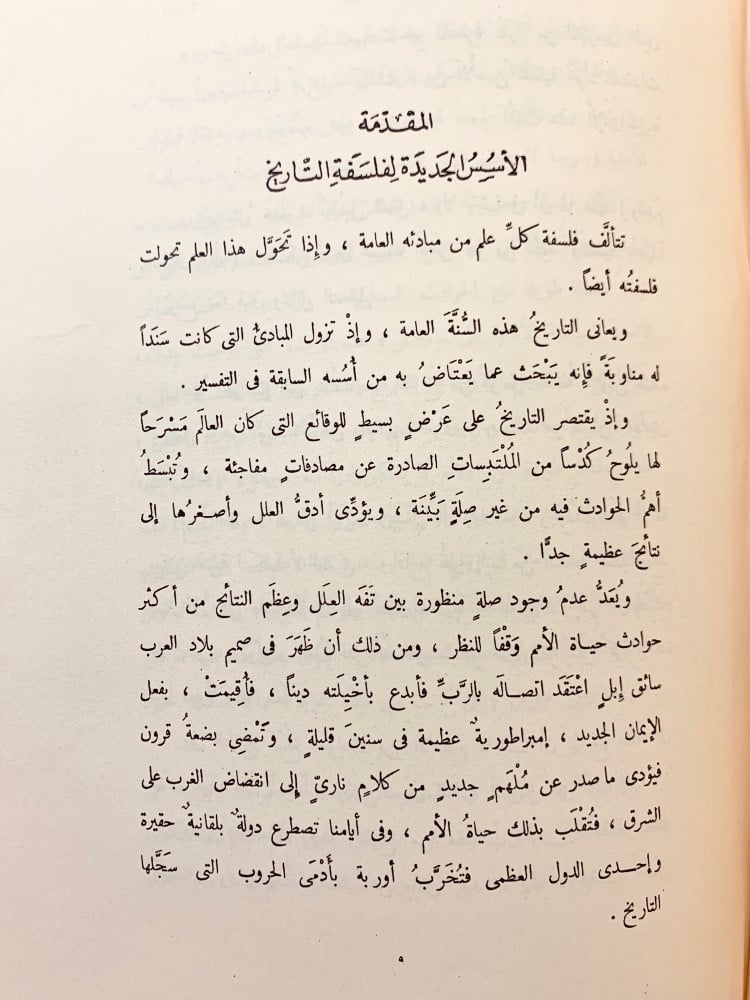 المقدّمَة
الأسُسُ الجَديدَة لِفلسَفَةِ التّاريخ
تتألَّف فلسفة كلِّ علم من مبادئه العامة ، وإذا تَحَوَّل هذا العلم تحولت
فلسفتُه أيضاً .
ويعانى التاريخُ هذه السُّنَّةَ العامة ، وإذْ تزول المبادئُ التى كانت سَنَداً
له مناوبَةً فإنه يَبْحَث عما يَعْتَاضُ به من أُسُسه السابقة فى التفسير .
وإذْ يقتصر التاريخُ على عَرْضٍ بسيطٍ للوقائع التى كان العالَم مَسْرَحاً
لها يلُوحُ كُدْساً من المُلْتَبِسات الصادرة عن مصادفاتٍ مفاجئة ، وتُبْسَطُ
أهمُّ الحوادث فيه من غير صِلَةٍ بَيِّنَة ، ويؤدِّى أدقُّ العلل وأصغرُها إلى
نتائجَ عظيمةٍ جدًّا .
ويُعَدُّ عدمُ وجود صلةٍ منظورة بين تَفَه العِلَل وعِظَم النتائج من أكثر
حوادث حياة الأمم وَقْفاً للنظر ، ومن ذلك أن ظَهَرَ فى صميم بلاد العرب
سائق إبلٍ اعْتَقَدَ اتصالَه بالرَّبِّ فأبدع بأخْيِلَته ديناً ، فأُقِيمَتْ ، بفعل
الإيمان الجديد ، إمبراطوريةٌ عظيمة فى سنينَ قليلةٍ ، وتَمْضِى بضعةُ قرون
فيؤدى ما صدر عن مُلْهَمٍ جديدٍ من كلامٍ نارىٍّ إلى انقضاض الغرب على
الشرق ، فتُقْلَب بذلك حياةُ الأمم ، وفى أيامنا تصطرع دولةٌ بلقانيةٌ حقيرة
وإحدى الدول العظمى فتُخَرَّبُ أوربة بأَدْمَى الحروب التى سَجَّلها
التاريخ .
٩